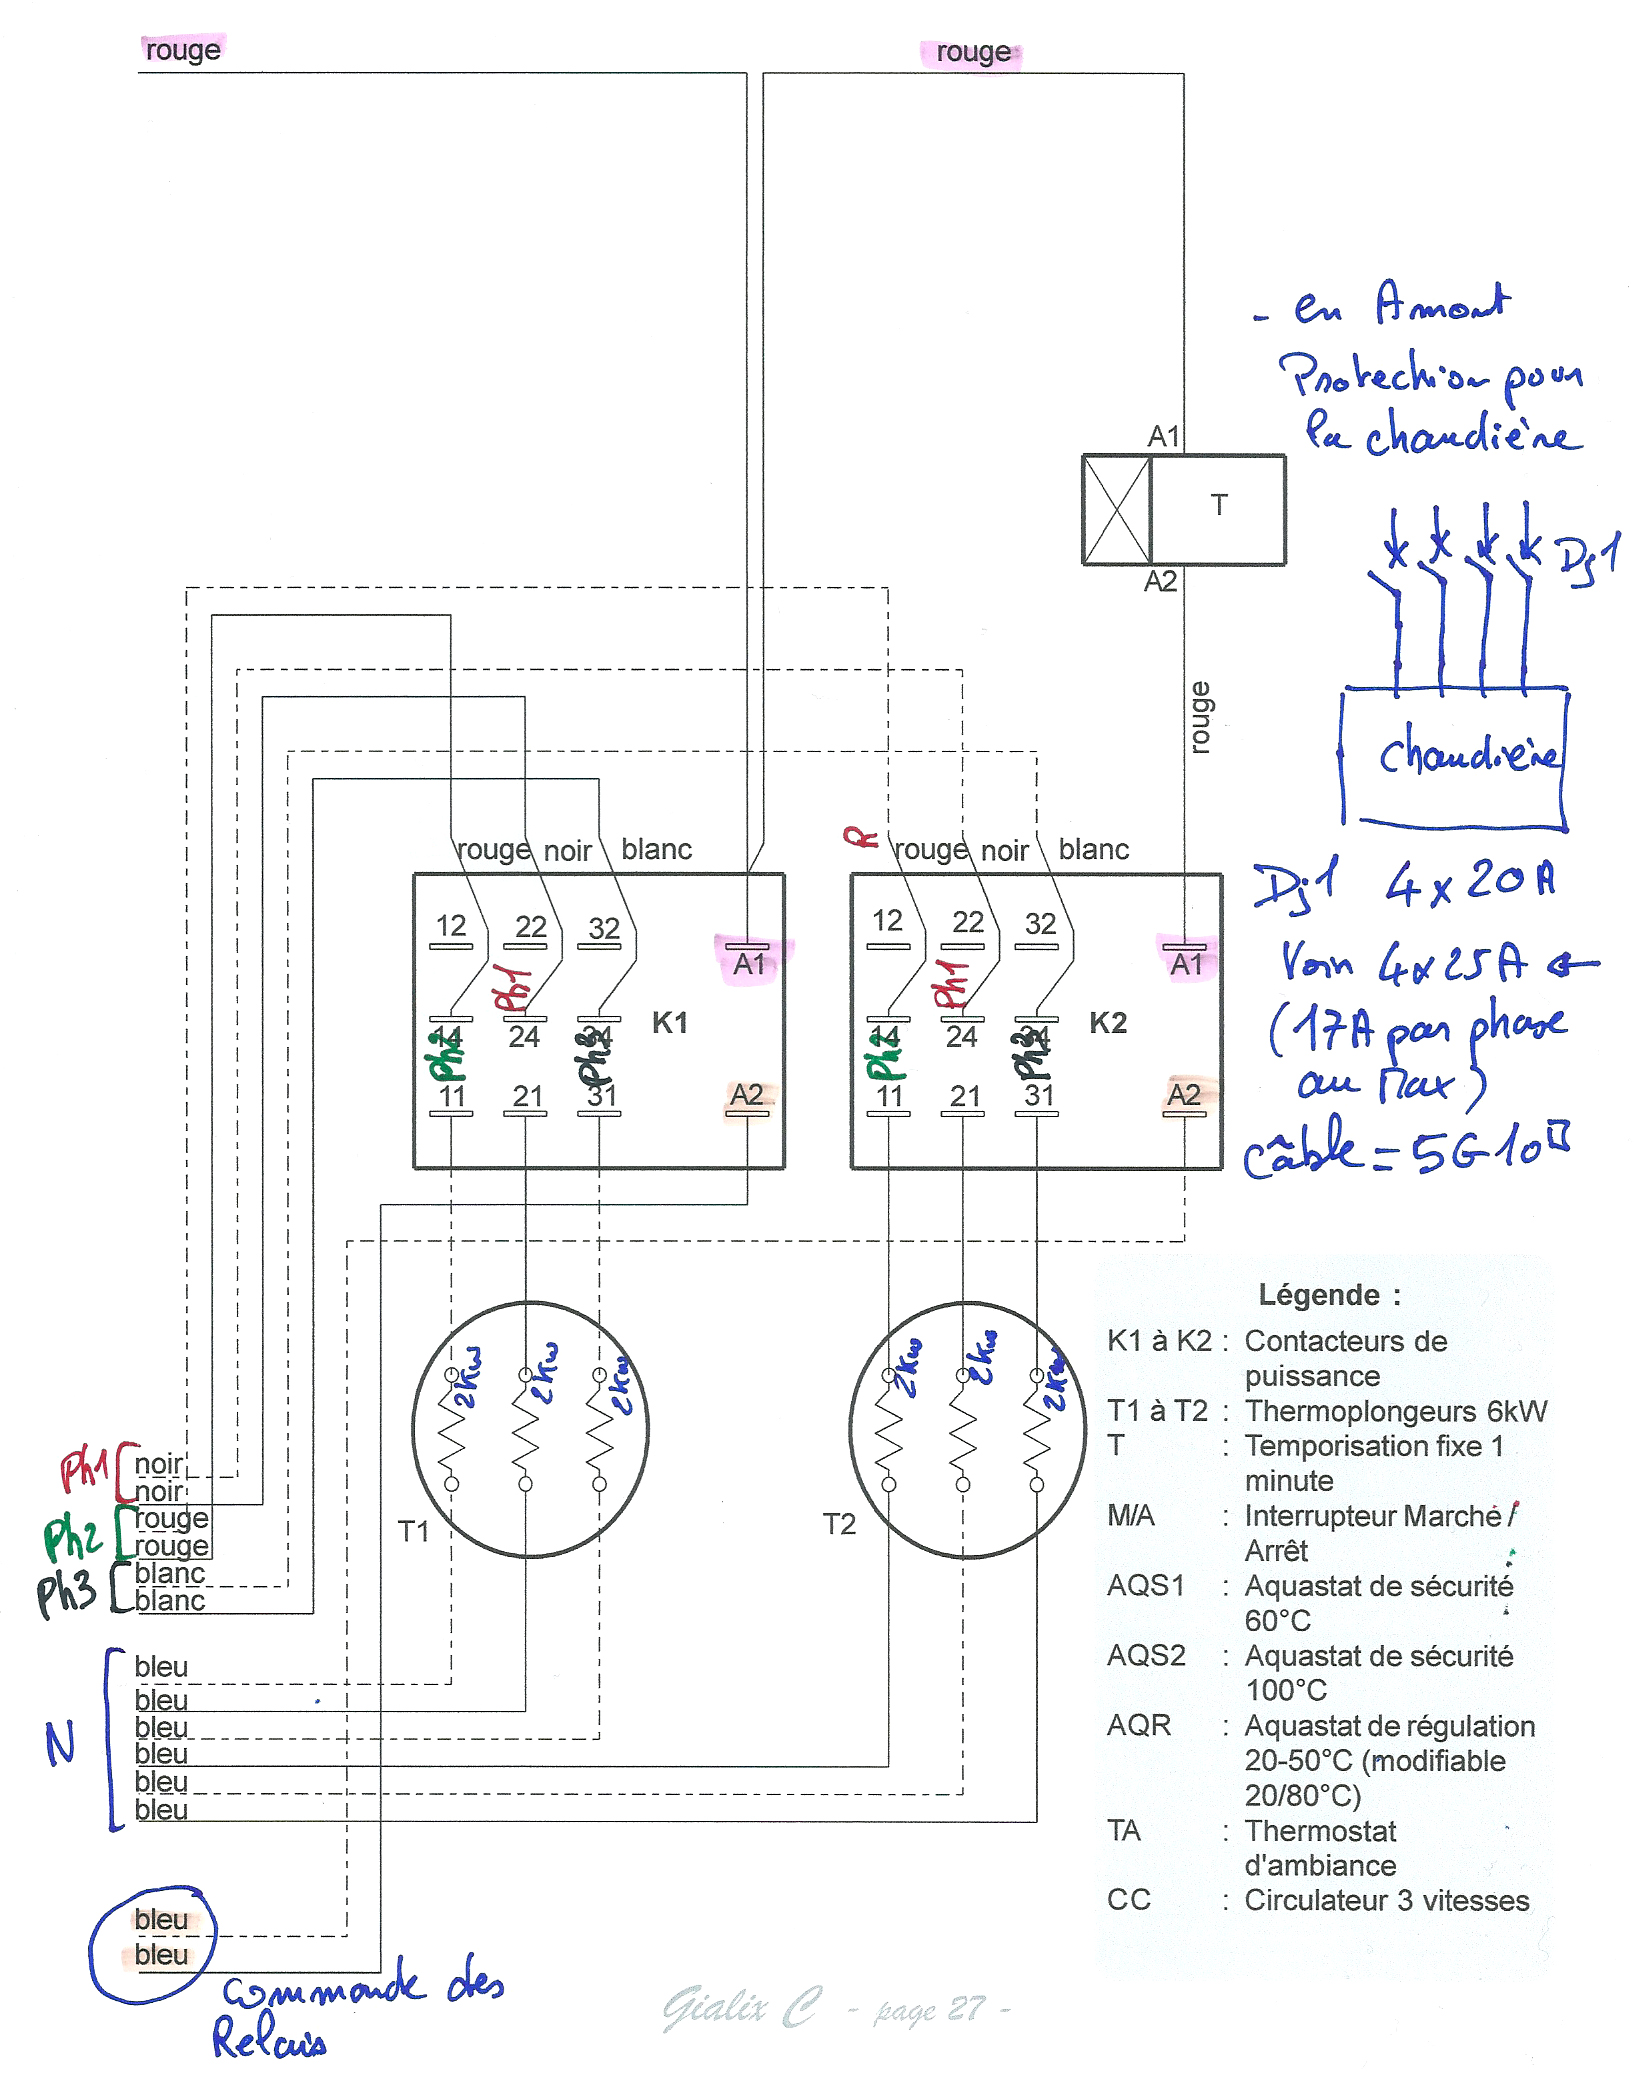 rouge
rouge
- en Amont
Protection pour
la chaudière
A1
T
A2
Dj1
rouge
chaudière
R
rouge noir blanc
rouge noir blanc
Dj1 4 x 20A
12 22 32 A1
12 22 32 A1
Voir 4x25A ←
Ph1
Ph1
14 24 34 K1
14 24 34 K2
(17A par phase
au Max)
Ph2 Ph3
Ph2 Ph3
11 21 31 A2
11 21 31 A2
câble = 5G10□
Légende :
K1 à K2 : Contacteurs de
puissance
T1 à T2 : Thermoplongeurs 6kW
T : Temporisation fixe 1
minute
M/A : Interrupteur Marche /
Arrêt
AQS1 : Aquastat de sécurité
60°C
AQS2 : Aquastat de sécurité
100°C
AQR : Aquastat de régulation
20-50°C (modifiable
20/80°C)
TA : Thermostat
d'ambiance
CC : Circulateur 3 vitesses
2Kw 2Kw 2Kw
2Kw 2Kw 2Kw
T1
T2
Ph1
noir
noir
Ph2
rouge
rouge
Ph3
blanc
blanc
N
bleu
bleu
bleu
bleu
bleu
bleu
bleu
bleu
commande des
Relais
Gialix C - page 27 -